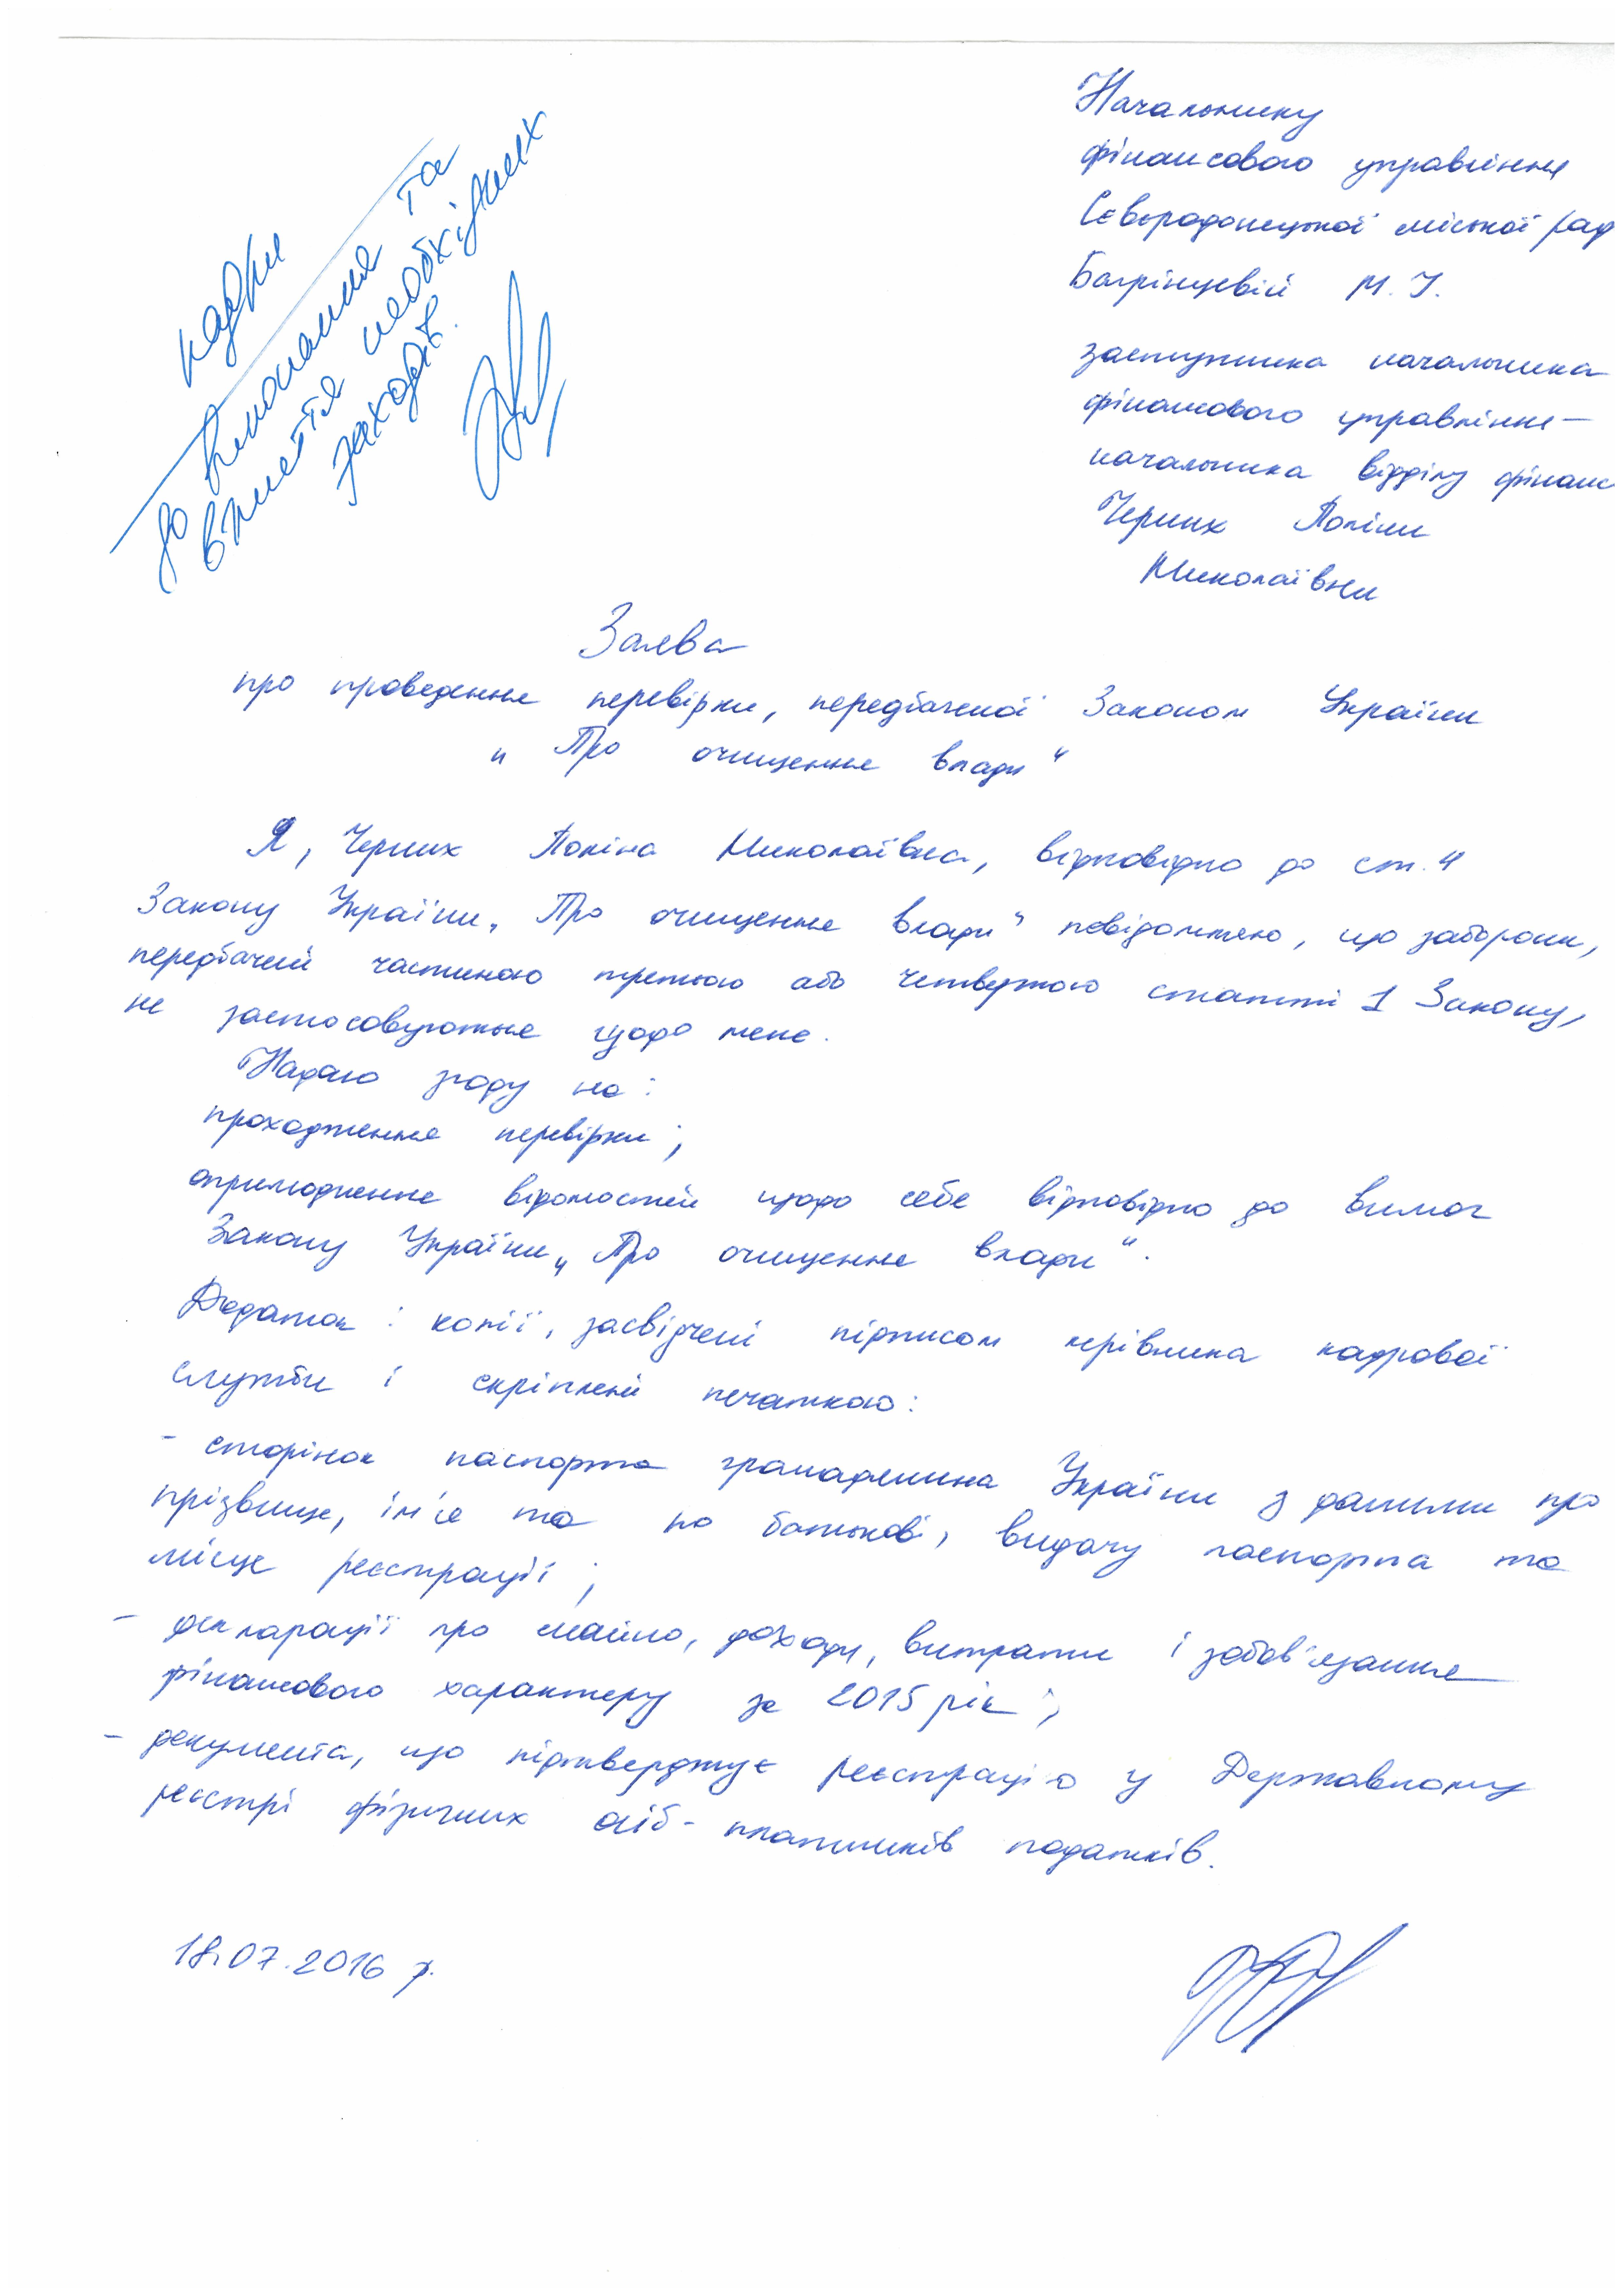 Начальнику
фінансового управління
Сєвєродонецької міської рад
Багрінцевій М.І.
заступника начальника
фінансового управління –
начальника відділу фінанс
Черних Поліни
Миколаївни
кадри
до виконання та
вжиття необхідних
заходів.
Заява
про проведення перевірки, передбаченої Законом України
„Про очищення влади“
Я, Черних Поліна Миколаївна, відповідно до ст. 4
Закону України „Про очищення влади“ повідомляю, що заборони,
передбачені частиною третьою або четвертою статті 1 Закону,
не застосовуються щодо мене.
Надаю згоду на:
проходження перевірки;
оприлюднення відомостей щодо себе відповідно до вимог
Закону України „Про очищення влади“.
Додаток: копії, засвідчені підписом керівника кадрової
служби і скріплені печаткою:
- сторінок паспорта громадянина України з даними про
прізвище, ім'я та по батькові, видачу паспорта та
місце реєстрації;
- декларації про майно, доходи, витрати і зобов'язання
фінансового характеру за 2015 рік;
- документа, що підтверджує реєстрацію у Державному
реєстрі фізичних осіб - платників податків.
18.07.2016 р.